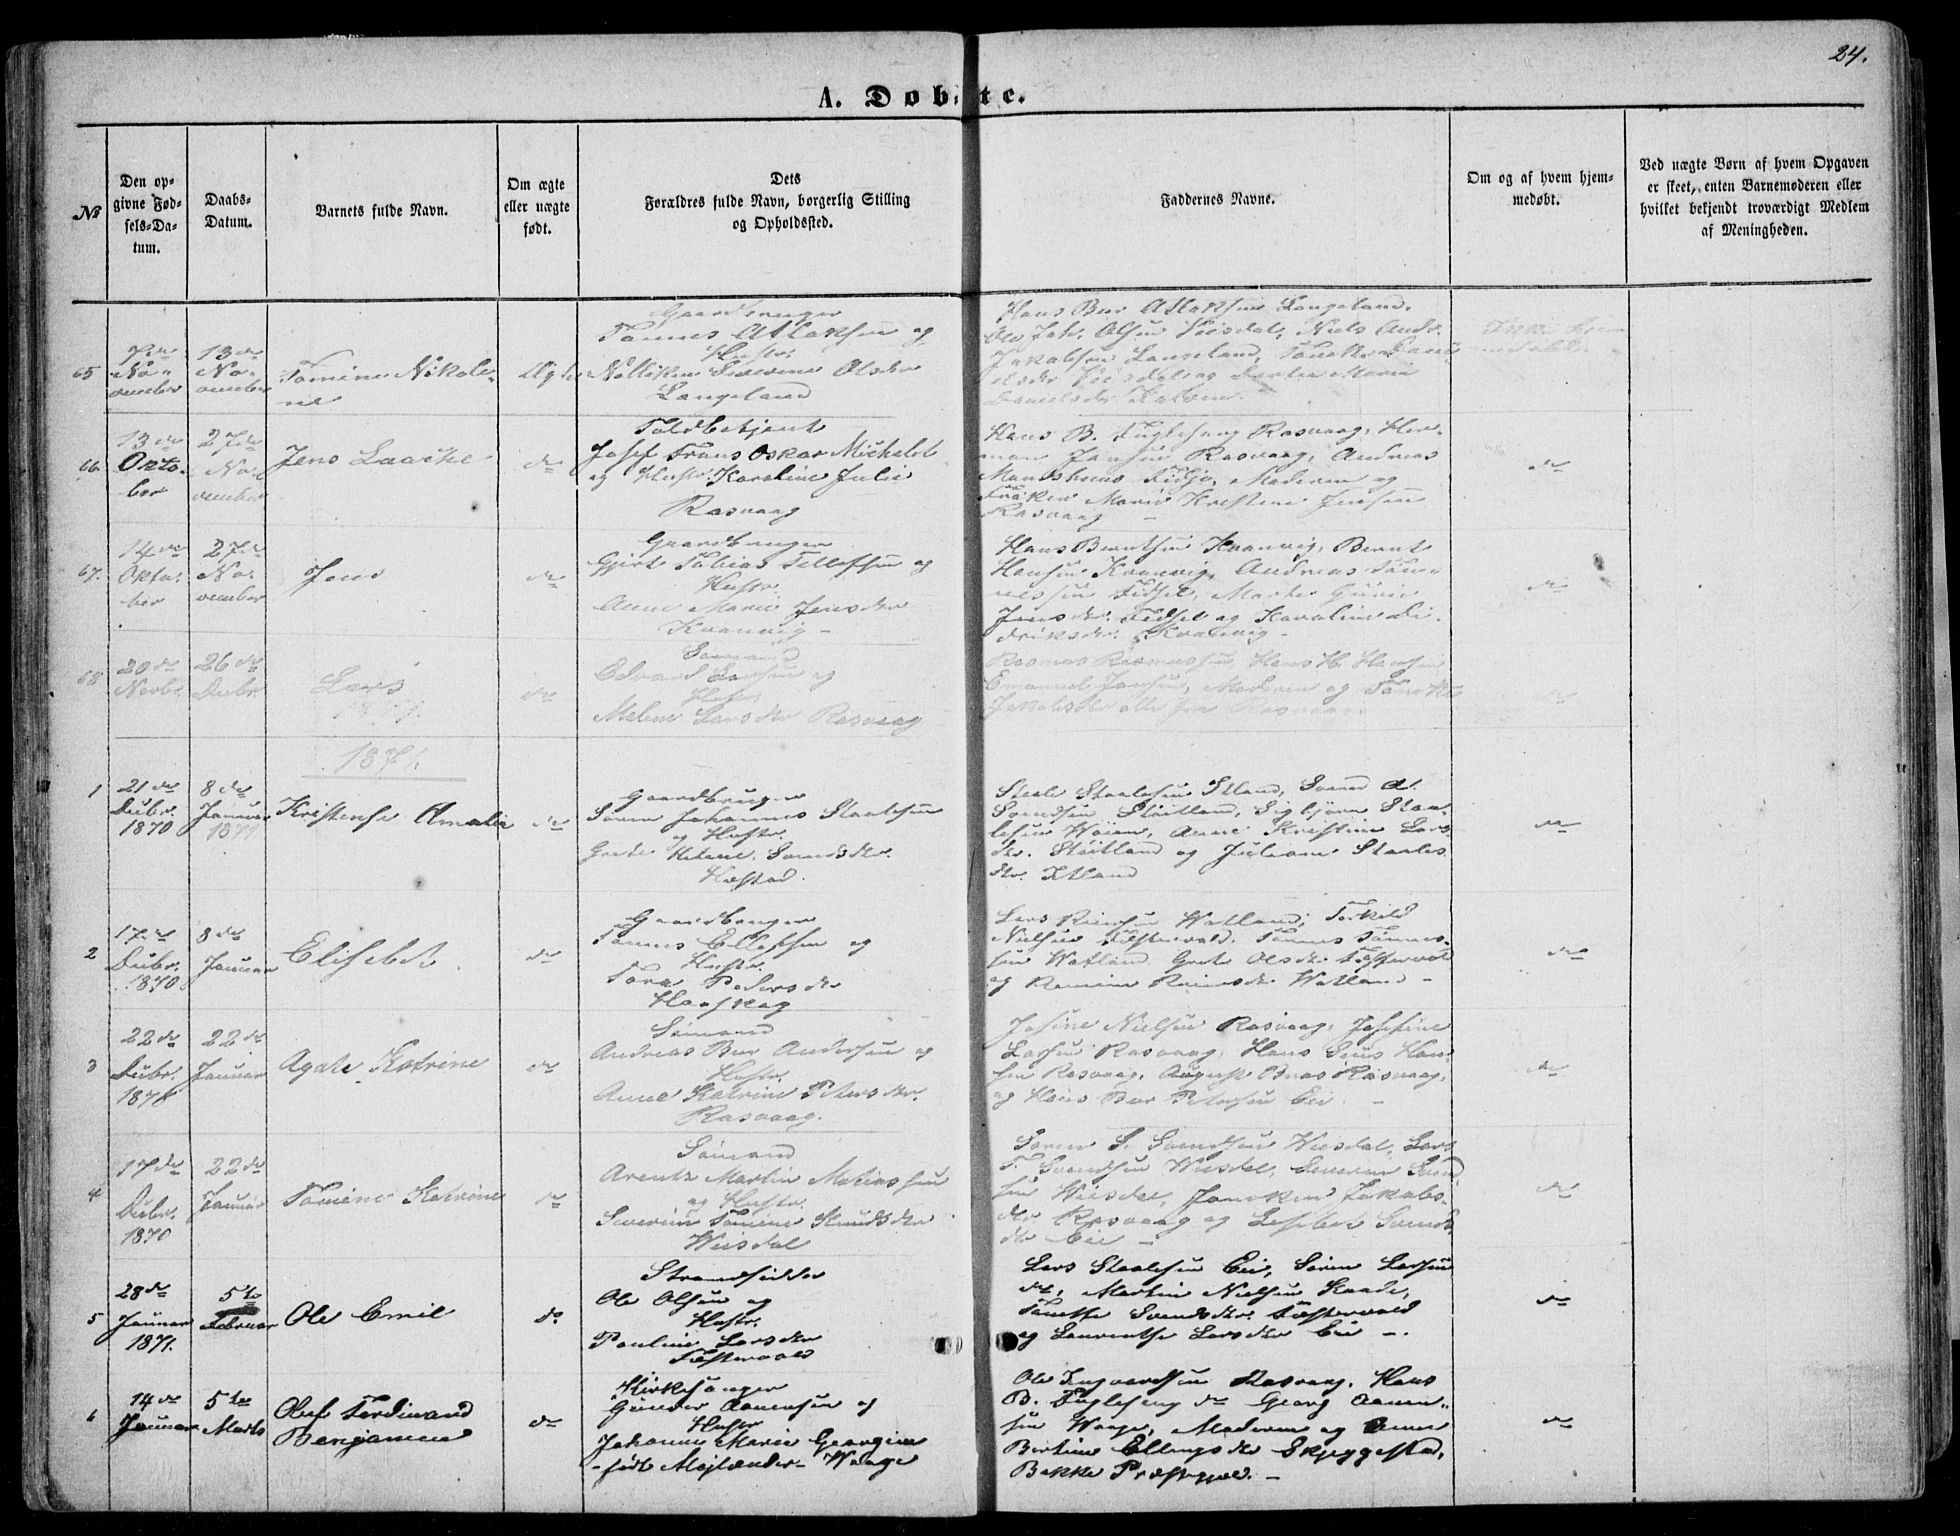 24.
A. Døbte.
№
Den op-
givne Fød-
sels-Da-
tum.
Daabs-
Datum.
Barnets fulde Navn.
Om ægte
eller uægte
født.
Dets
Forældres fulde Navn, borgerlig Stilling
og Opholdssted.
Faddernes Navne.
Om og af hvem hjem-
medøbt.
Ved uægte Børn af hvem Opgaven
er skeet, enten Barnemoderen eller
hvilket bekjendt troværdigt Medlem
af Menigheden.
65
7de
No-
vember
13de
No-
vember
Tomine Nikole-
ne
Ægte
Gaardbruger
Tønnes Atlaksen og
Hustr.
Severine Olsdr
Langeland
Hans Ber Atlaksen Langeland,
Ole Joh. Olsen Veisdal, Niels Andr.
Jakobsen Langeland, Tønette
66
13de
Okto-
ber
27de
No-
vember
Jens Laache
do
Toldbetjent
Josef Frans Oskar Michelet
og Hustr. Karoline Julie
Rasvaag
Hans B. Fuglesang Rasvaag, Her-
man Jansen Rasvaag, Andreas
Moderen og
Frøken Marie Kristine Jensen
Rasvaag –
do
67.
14de
Okto-
ber
27de
No-
vember
Jens
do
Gaardbruger
Gjert Tobias Tellefsen og
Hustr.
Anne Marie Jensdtr
Kvanvig –
Hans Berntsen Kvanvig, Bernt
Hansen Kvanvig, Andreas Tøn-
nessen Fidsel, Marte
Jensdtr. Fidsel og Karoline Di-
driksdtr. Kvanvig –
do
68
30de
Novbr.
26de
Debr.
Lars
do
Sømand
Edvard Larsen og
Hustr.
Malene Larsdtr Rasvaag
Rasmus Rasmussen, Hans H. Hansen
Emanuel Jansen, Moderen og
Jakobsdtr alle fra Rasvaag.
do
1871.
1
21de
Debr.
1870
8de
Januar
1871
Kristense Amalie
do
Gaardbruger
Søren Johannes Staalesen
og Hustr.
Grete Helene Svendsdtr.
Hæstad.
Staale Staalesen Itland, Svend A.
Svendsen Støitland, Sigbjørn Staa-
lesen Anne Kristine Lars-
dtr. Støitland og Juliane Staales-
dtr. Itland
do
2
17de
Debr.
1870
8de
Januar
Elisebet
do
Gaardbruger
Tønnes Ellefsen og
Hustr.
Tora Pedersdtr
Lars Reiersen Watland, Torkild
Nielsen Tønnes Tønnes-
sen Watland, Grete Olsdtr.
og Reiersdtr Watland –
do
3
22de
Debr.
1870
22de
Januar
Agate Katrine
do
Sømand
Andreas Ber Andersen og
Hustr.
Anne Katrine Petersdtr.
Rasvaag.
Josine Nielsen Rasvaag, Josefine
Larsen Rasvaag, Hans Han-
sen Rasvaag, August Rasvaag,
og Hans Ber Petersen Eie. –
do
4
17de
Debr.
1870
22de
Januar
Tomine Katrine
do
Sømand
Arent Martin Matiassen
og Hustr.
Severine Tomine Knudsdtr
Veisdal
Søren S. Svendsen Veisdal, Lars
T. Svendsen Veisdal, Severin Svend-
sen Veisdal, Jakobs-
dtr. Rasvaag og Lisebet Svends-
dtr Eie –
do
5
28de
Januar
1871.
5te
Februar
Ole Emil
do
Strandsidder
Ole Olsen og
Hustr.
Pauline Larsdtr
Lars Staalesen Eie, Søren Larsen
do, Martin Nielsen
Tønette Svendsdtr.
og Laurentse Larsdtr Eie –.
do
6
14de
Januar
5te
Marts
Oluf Ferdinand
Benjamin
do
Kirkesanger
Gunder Aanensen og
Hustr
Johanne Marie Georgine
– født Mejlænder – Waage
Ole Ingvardsen Rasvaag, Hans
B. Fuglesang do Georg Aanen-
sen Waage, Moderen og Anne
Bertine Ellingsdtr Skjeggestad,
Bakke Præstegjæld. –
do